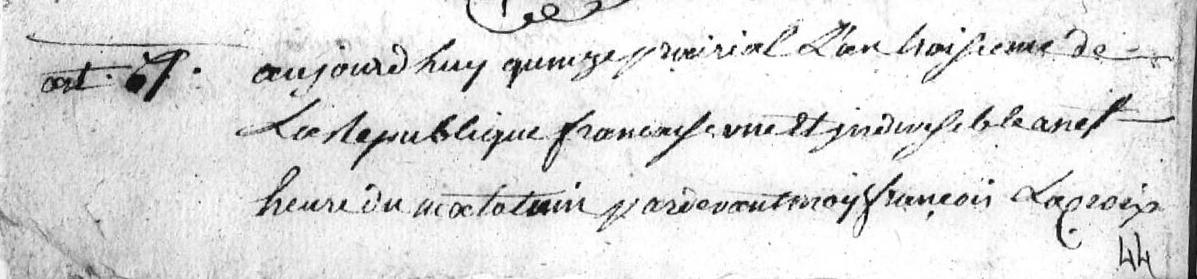 art. 67. aujourd huy quinze prairial L'an troisieme de
La Republique francaise vne Et jndiviseble a nef
heure du matatuin pardevant moy françois Lacroix
44